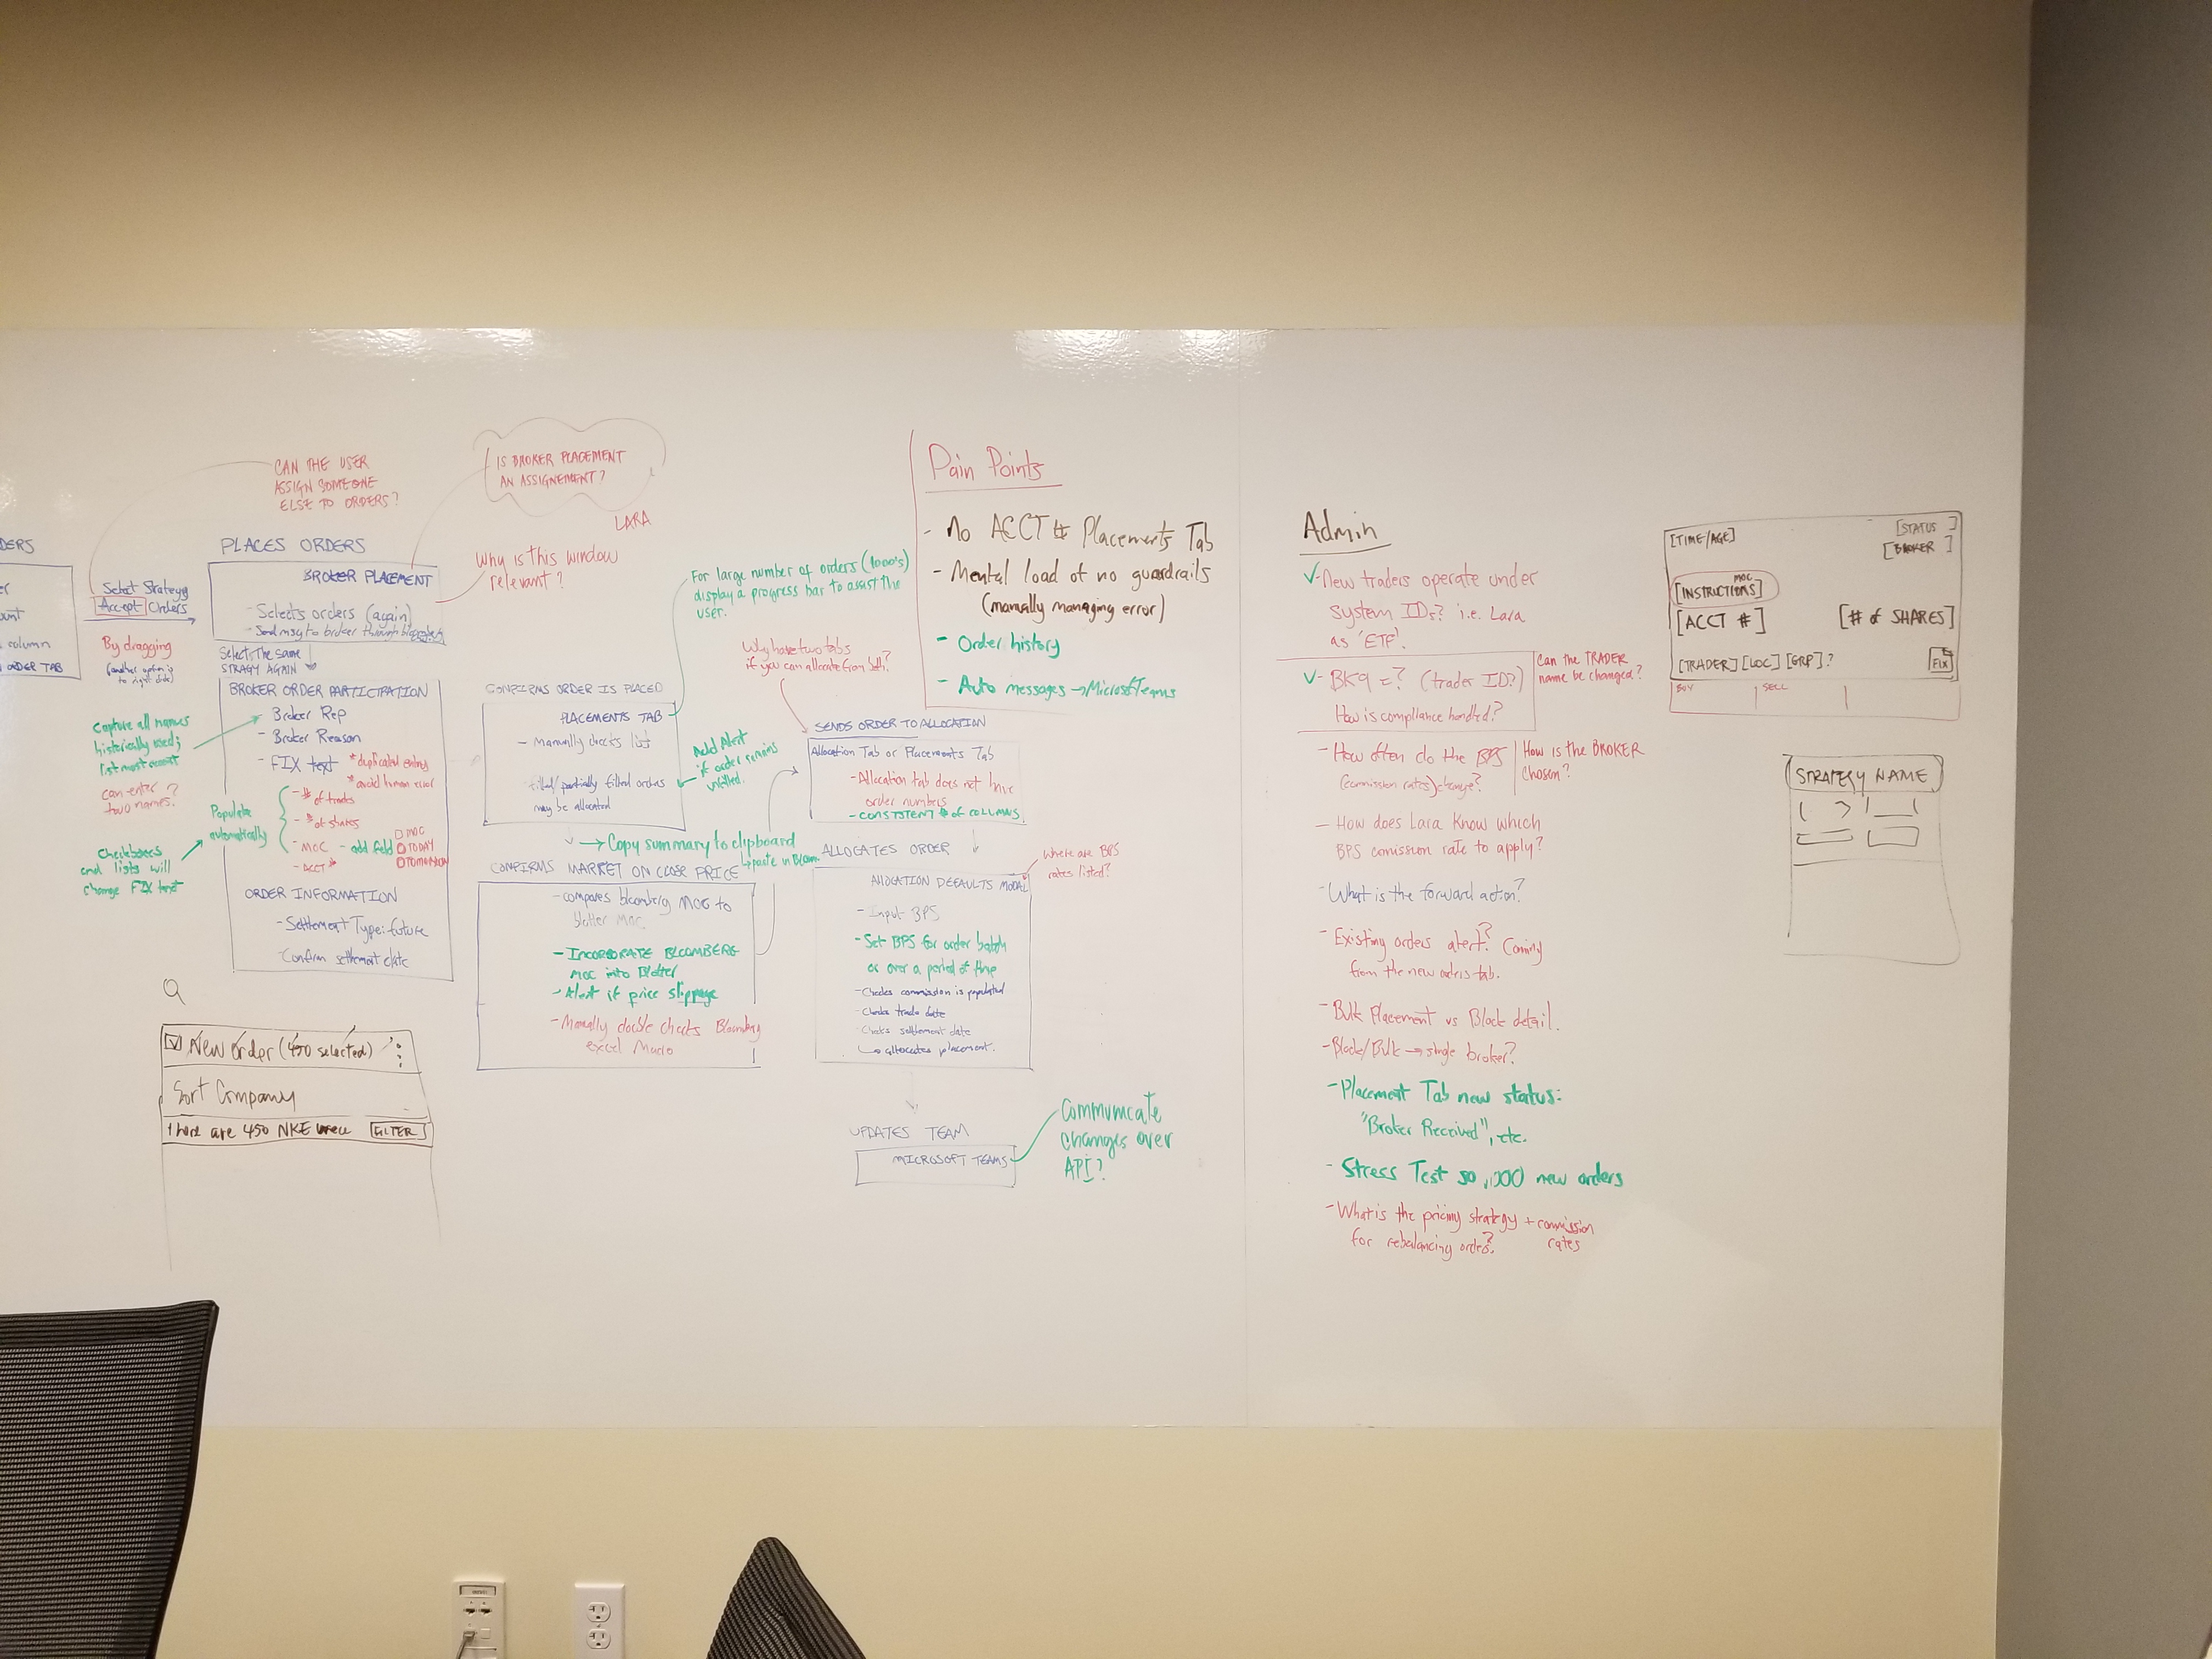 DERS
er
ount
column
ORDER TAB
CAN THE USER
ASSIGN SOMEONE
ELSE TO ORDERS?
Select Strategy
Accept Orders
By dragging
(another option is
to right click)
Capture all names
historically used;
list most recent
can enter
two names?
Populate
automatically
Checkboxes
and lists will
change FIX text
PLACES ORDERS
BROKER PLACEMENT
- Selects orders (again)
- Send msg to broker through
Select The same
STRAGY AGAIN
BROKER ORDER PARTICIPATION
- Broker Rep
- Broker Reason
- FIX text
* duplicated entry
* avoid human error
- # of trades
- # of shares
- MOC - add field
MOC
TODAY
TOMORROW
- ACCT #
ORDER INFORMATION
- Settlement Type: future
- Confirm settlement date
New order (450 selected)
Sort Company
There are 450 NKE FILTER
IS BROKER PLACEMENT
AN ASSIGNEMENT?
LARA
Why is this window
relevant?
For large number of orders (1000's)
display a progress bar to assist the
user.
CONFIRMS ORDER IS PLACED
PLACEMENTS TAB
- Manually checks list
filled/partially filled orders
may be allocated
Add Alert
if order remains
unfilled.
→ Copy summary to clipboard
↳ paste in Bloom
CONFIRMS MARKET ON CLOSE PRICE
- compares bloomberg MOC to
blotter MOC
- INCORPORATE BLOOMBERG
MOC into Blotter
- Alert if price slippage
- Manually double checks Bloomberg
excel Macro
Why have two tabs
if you can allocate from both?
SENDS ORDER TO ALLOCATION
Allocation Tab or Placements Tab
- Allocation tab does not have
order numbers
- CONSISTENT # OF COLUMNS
ALLOCATES ORDER
Where are BPS
rates listed?
ALLOCATION DEFAULTS MODAL
- Input BPS
- Set BPS for order batch
or over a period of time
- Checks commission is populated
- Checks trade date
- Checks settlement date
↳ allocates placement.
UPDATES TEAM
MICROSOFT TEAMS
Communicate
changes over
API?
Pain Points
- No ACCT # Placements Tab
- Mental load of no guardrails
(manually managing error)
- Order history
- Auto messages → Microsoft Teams
Admin
✓ - New traders operate under
system IDs? i.e. Lara
as 'ETF'.
✓ - BK9 = ? (trader ID?)
How is compliance handled?
Can the TRADER
name be changed?
- How often do the BPS
(commission rates) change?
How is the BROKER
chosen?
- How does Lara know which
BPS comission rate to apply?
- What is the forward action?
- Existing orders alert? Coming
from the new orders tab.
- Bulk Placement vs Block detail.
- Block/Bulk → single broker?
- Placement Tab new status:
"Broker Received", etc.
- Stress Test 50,000 new orders
- What is the pricing strategy + commission
rates
for rebalancing orders?
[TIME/AGE]
[STATUS]
[BROKER]
MOC
[INSTRUCTIONS]
[ACCT #]
[# of SHARES]
[TRADER] [LOC] [GRP] ?
FIX
BUY
SELL
STRATEGY NAME